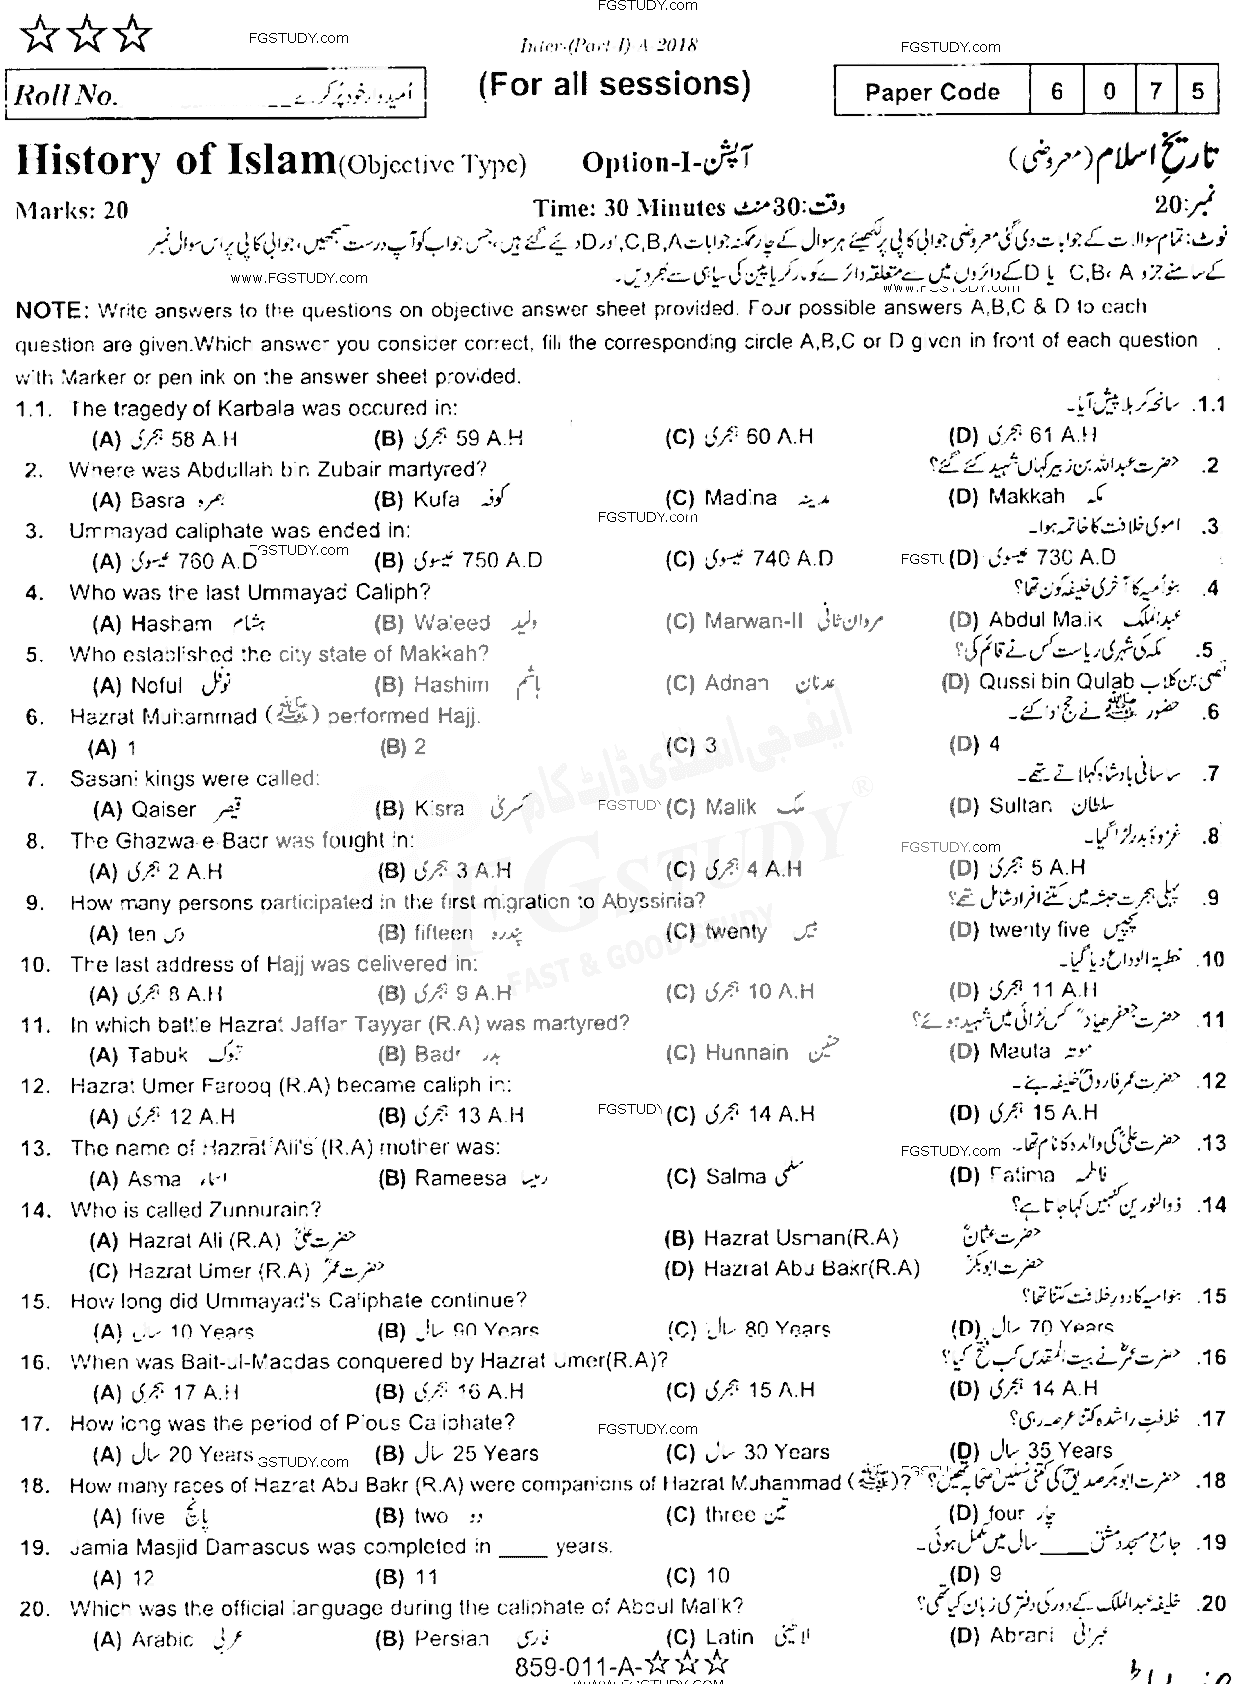 FGSTUDY.com
FGSTUDY.com Inter-(Part I)-A-2018 FGSTUDY.com
Roll No. اُمیدوار خود پُر کرے (For all sessions) Paper Code 6 0 7 5
History of Islam (Objective Type) Option-I-آپشن تاریخِ اسلام (معروضی)
Marks: 20 Time: 30 Minutes وقت:30منٹ نمبر:20
نوٹ: تمام سوالات کے جوابات دی گئی معروضی جوابی کاپی پر لکھیئے ہر سوال کے چار ممکنہ جوابات C,B,A اور D دیئے گئے ہیں، جس جواب کو آپ درست سمجھیں، جوابی کاپی پر اس سوال نمبر
کے سامنے جزو C,B، A یا D کے دائروں میں سے متعلقہ دائرے کو مارکر یا پین کی سیاہی سے بھر دیں۔
www.FGSTUDY.com www.FGSTUDY.com
NOTE: Write answers to the questions on objective answer sheet provided. Four possible answers A,B,C & D to each
question are given.Which answer you consider correct, fill the corresponding circle A,B,C or D given in front of each question
with Marker or pen ink on the answer sheet provided.
1.1. The tragedy of Karbala was occured in: سانحہ کربلا پیش آیا۔ .1.1
(A) ہجری 58 A.H (B) ہجری 59 A.H (C) ہجری 60 A.H (D) ہجری 61 A.H
2. Where was Abdullah bin Zubair martyred? حضرت عبداللہ بن زبیر کہاں شہید کئے گئے؟ .2
(A) Basra بصرہ (B) Kufa کوفہ (C) Madina مدینہ (D) Makkah مکہ
FGSTUDY.com
3. Ummayad caliphate was ended in: اموی خلافت کا خاتمہ ہوا۔ .3
(A) عیسوی 760 A.D FGSTUDY.com (B) عیسوی 750 A.D (C) عیسوی 740 A.D FGSTU (D) عیسوی 730 A.D
4. Who was the last Ummayad Caliph? بنو اُمیہ کا آخری خلیفہ کون تھا؟ .4
(A) Hasham ہشام (B) Waleed ولید (C) Marwan-II مروان ثانی (D) Abdul Malik عبدالملک
5. Who established the city state of Makkah? مکہ کی شہری ریاست کس نے قائم کی؟ .5
(A) Noful نوفل (B) Hashim ہاشم (C) Adnan عدنان (D) Qussi bin Qulab قصی بن کلاب
6. Hazrat Muhammad (ﷺ) performed Hajj. حضور ﷺ نے حج ادا کئے۔ .6
(A) 1 (B) 2 (C) 3 (D) 4
7. Sasani kings were called: ساسانی بادشاہ کہلاتے تھے۔ .7
(A) Qaiser قیصر (B) Kisra کسریٰ FGSTUDY (C) Malik ملک (D) Sultan سلطان
8. The Ghazwa-e-Badr was fought in: غزوۂ بدر لڑا گیا۔ .8
FGSTUDY.com
(A) ہجری 2 A.H (B) ہجری 3 A.H (C) ہجری 4 A.H (D) ہجری 5 A.H
9. How many persons participated in the first migration to Abyssinia? پہلی ہجرت حبشہ میں کتنے افراد شامل تھے؟ .9
(A) ten دس (B) fifteen پندرہ (C) twenty بیس (D) twenty five پچیس
10. The last address of Hajj was delivered in: خطبۃ الوداع دیا گیا۔ .10
(A) ہجری 8 A.H (B) ہجری 9 A.H (C) ہجری 10 A.H (D) ہجری 11 A.H
11. In which battle Hazrat Jaffar Tayyar (R.A) was martyred? حضرت جعفر طیارؓ کس لڑائی میں شہید ہوئے؟ .11
(A) Tabuk تبوک (B) Badr بدر (C) Hunnain حنین (D) Mauta موتہ
12. Hazrat Umer Farooq (R.A) became caliph in: حضرت عمر فاروقؓ خلیفہ بنے۔ .12
(A) ہجری 12 A.H (B) ہجری 13 A.H FGSTUDY (C) ہجری 14 A.H (D) ہجری 15 A.H
13. The name of Hazrat Ali's (R.A) mother was: FGSTUDY.com حضرت علیؓ کی والدہ کا نام تھا۔ .13
(A) Asma اسماء (B) Rameesa رمیسا (C) Salma سلمیٰ (D) Fatima فاطمہ
14. Who is called Zunnurain? ذوالنورین کنہیں کہا جاتا ہے؟ .14
(A) Hazrat Ali (R.A) حضرت علیؓ (B) Hazrat Usman(R.A) حضرت عثمانؓ
(C) Hazrat Umer (R.A) حضرت عمرؓ (D) Hazrat Abu Bakr(R.A) حضرت ابوبکرؓ
15. How long did Ummayad's Caliphate continue? بنو امیہ کا دور خلافت کتنا تھا؟ .15
(A) سال 10 Years (B) سال 90 Years (C) سال 80 Years (D) سال 70 Years
16. When was Bait-ul-Maqdas conquered by Hazrat Umer(R.A)? حضرت عمرؓ نے بیت المقدس کب فتح کیا؟ .16
(A) ہجری 17 A.H (B) ہجری 16 A.H (C) ہجری 15 A.H (D) ہجری 14 A.H
17. How long was the period of Pious Caliphate? FGSTUDY.com خلافتِ راشدہ کتنا عرصہ رہی؟ .17
(A) سال 20 Years GSTUDY.com (B) سال 25 Years (C) سال 30 Years (D) سال 35 Years
18. How many races of Hazrat Abu Bakr (R.A) were companions of Hazrat Muhammad (ﷺ)? حضرت ابوبکر صدیقؓ کی کتنی نسلیں صحابہ تھیں؟ .18
(A) five پانچ (B) two دو (C) three تین (D) four چار
19. Jamia Masjid Damascus was completed in ____ years. جامع مسجد دمشق ____ سال میں مکمل ہوئی۔ .19
(A) 12 (B) 11 (C) 10 (D) 9
20. Which was the official language during the caliphate of Abdul Malik? خلیفہ عبدالملک کے دور کی دفتری زبان کیا تھی؟ .20
(A) Arabic عربی (B) Persian فارسی (C) Latin لاطینی (D) Abrani عبرانی
859-011-A-☆☆☆
WWW.FGSTUDY.COM
ایف جی اسٹڈی ڈاٹ کام
FGSTUDY ®
FAST & GOOD STUDY